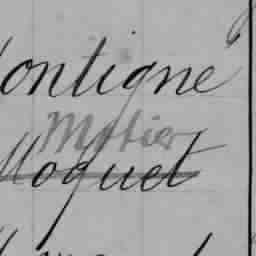 Montigné
Métier
Moquet